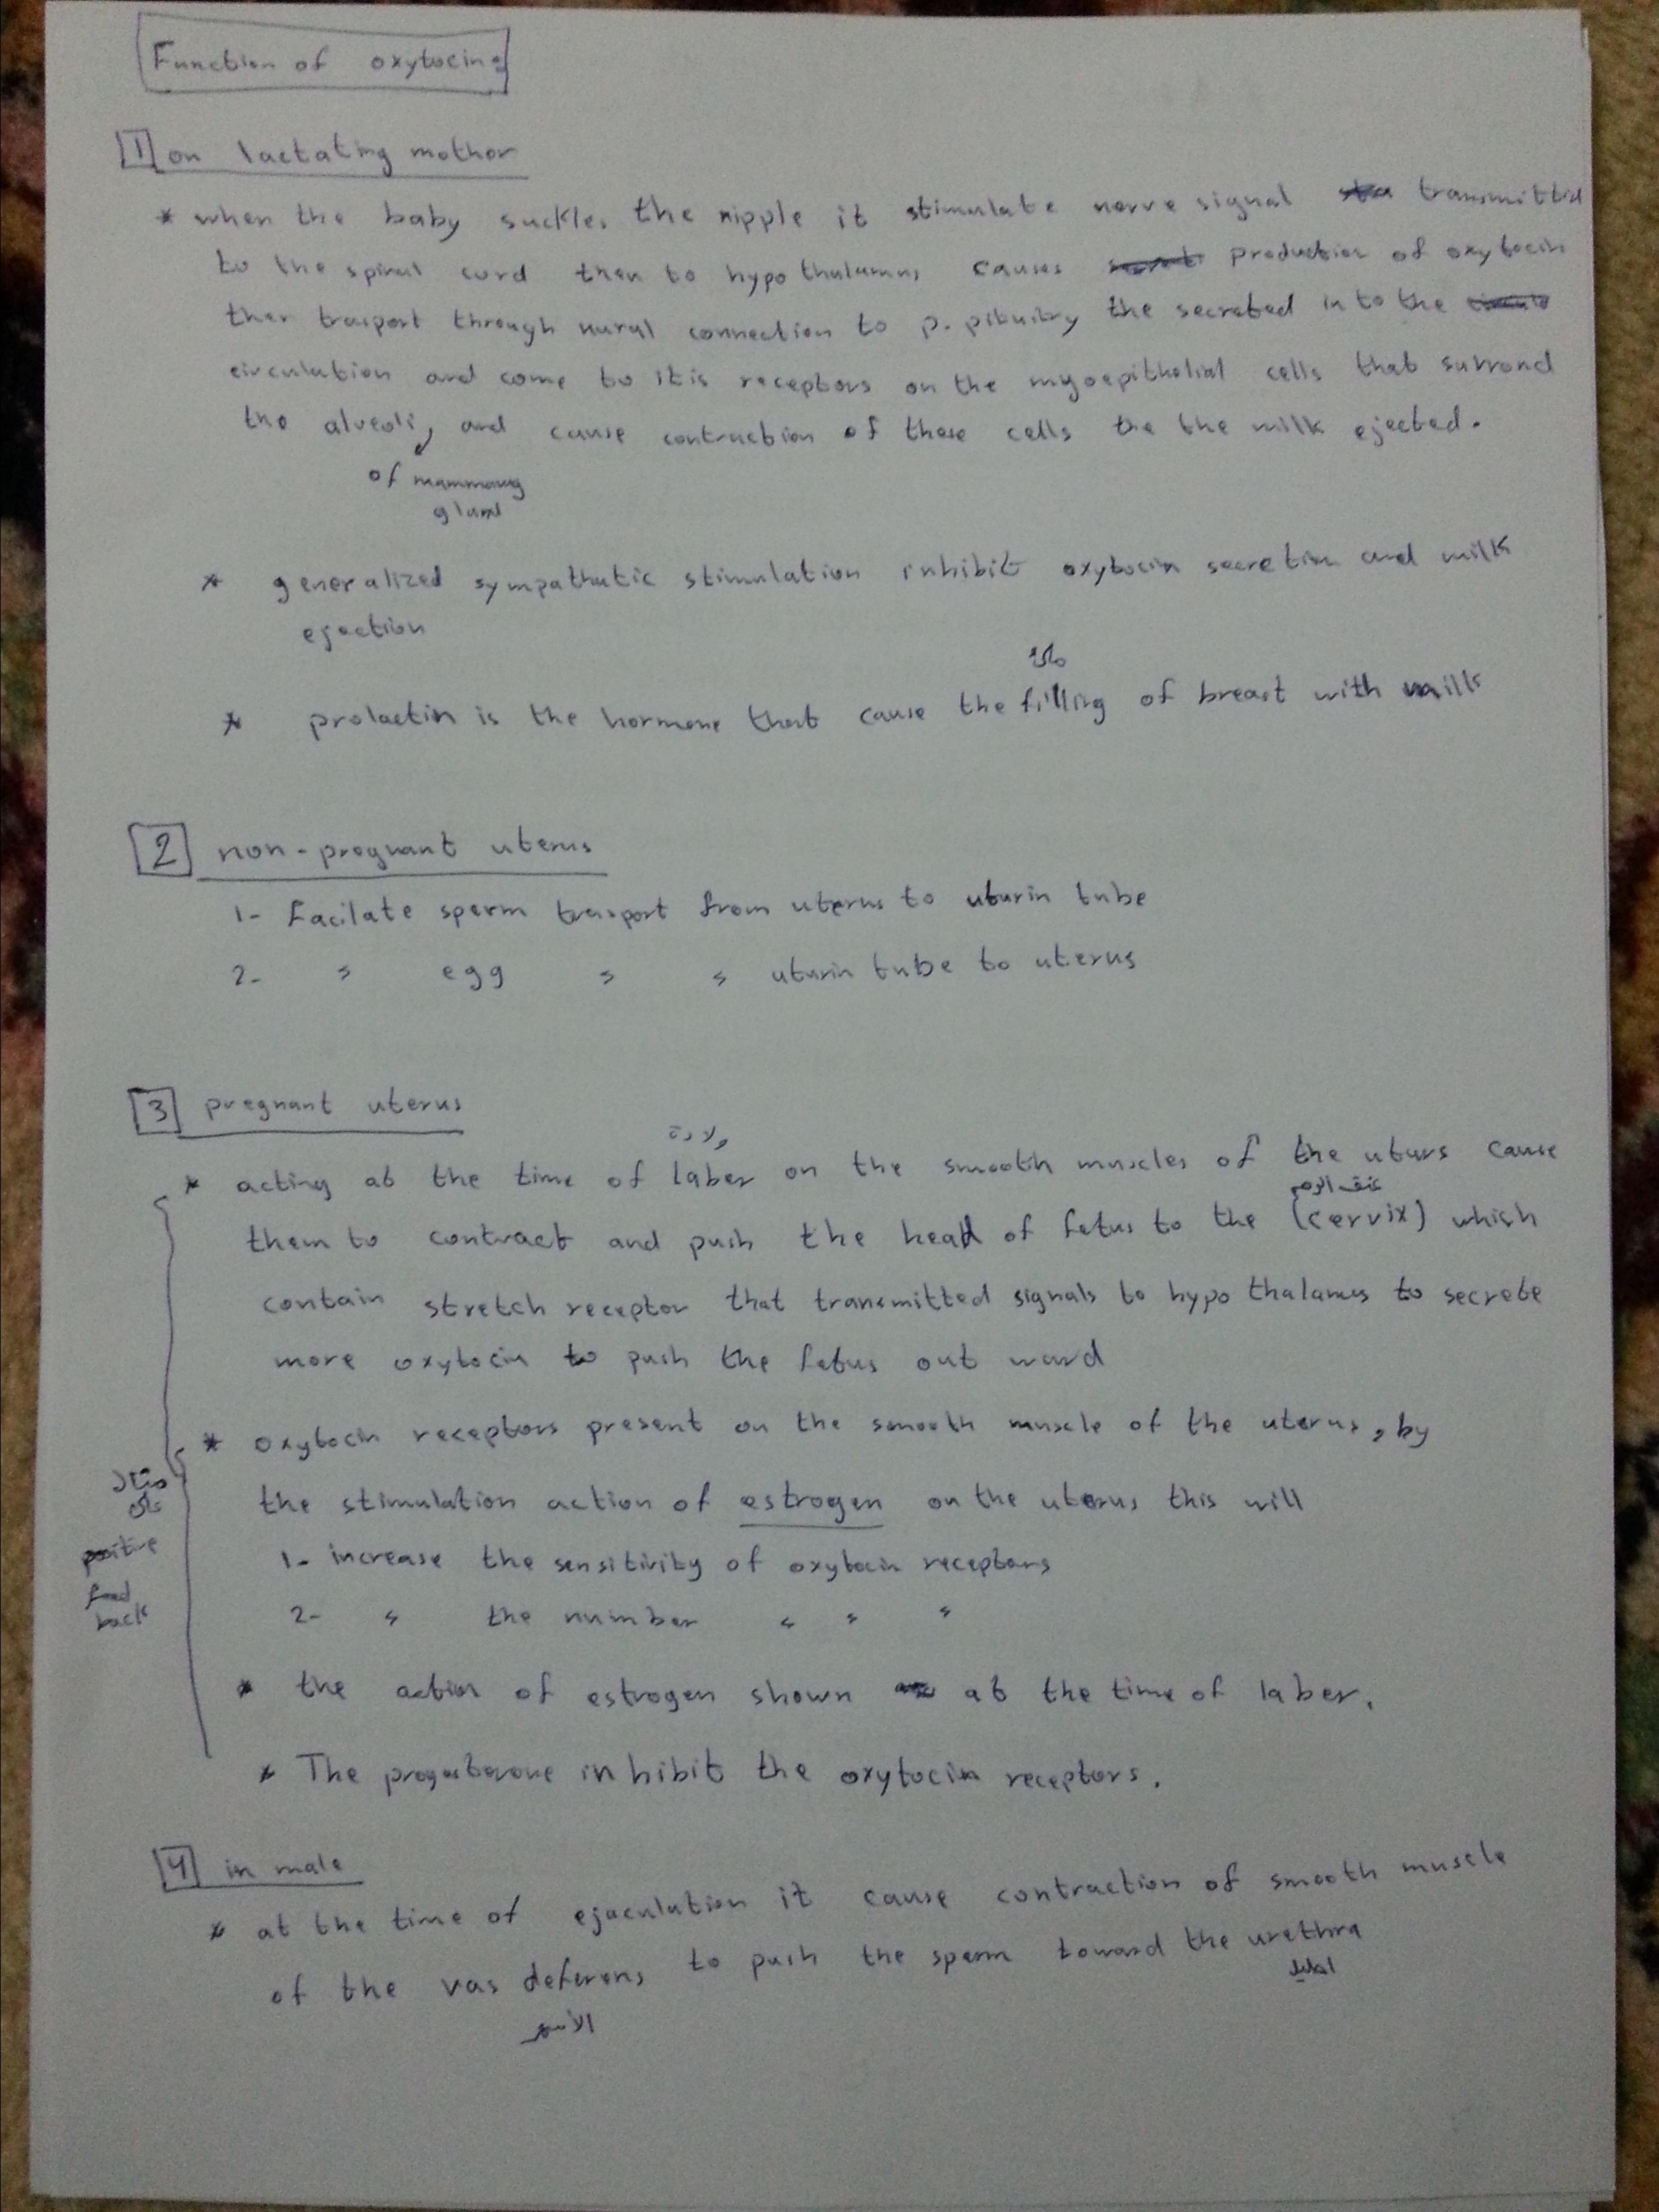 Function of oxytocin:
1 on lactating mothor
* when the baby suckles the nipple it stimulate nerve signal transmitted
to the spinal cord then to hypothalamus causes production of oxytocin
then trasport through nural connection to p. pituitry the secreted in to the
circulation and come to itis receptors on the myoepithelial cells that surrond
the alveoli, and cause contraction of these cells the the milk ejected.
of mammary
gland
* generalized sympathatic stimulation inhibit oxytocin secretion and milk
ejection
ملئ
* prolactin is the hormone that cause the filling of breast with milk
2 non-pregnant uterus
1- Facilate sperm trasport from uterus to uturin tube
2- " egg " " uturin tube to uterus
3 pregnant uterus
ولادة
* acting at the time of laber on the smooth muscles of the uturs cause
عنق الرحم
them to contract and push the head of fetus to the (cervix) which
contain stretch receptor that transmitted signals to hypothalamus to secrete
more oxytocin to push the fetus out ward
* oxytocin receptors present on the smooth muscle of the uterus, by
the stimulation action of estrogen on the uterus this will
1- increase the sensitivity of oxytocin receptors
2- " the number " " "
مثال
على
positive
feed
back
* the action of estrogen shown at the time of laber.
* The progesterone inhibit the oxytocin receptors.
4 in male
* at the time of ejaculation it cause contraction of smooth muscle
of the vas deferens to push the sperm toward the urethra